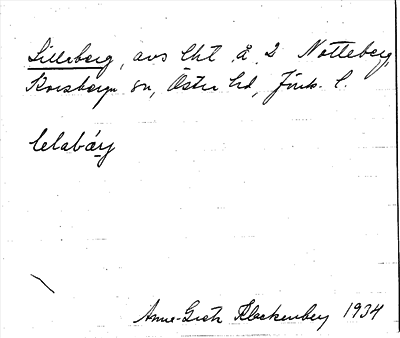 Lilleberg, avs lht å 2 Notteberg,
Korsberga sn, Östra hd, Jönk. l.
lelabárj
Anne-Greth Klockenberg 1934